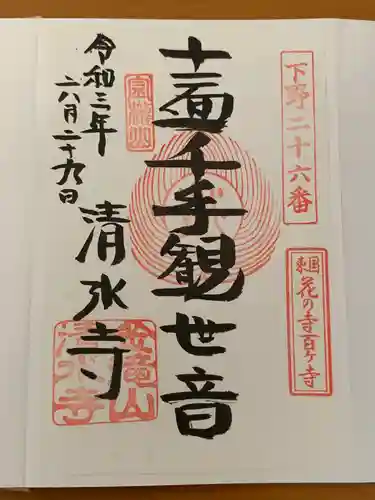 下野二十六番
東国花の寺百ヶ寺
十一面千手観世音
清水寺
令和三年
六月二十九日